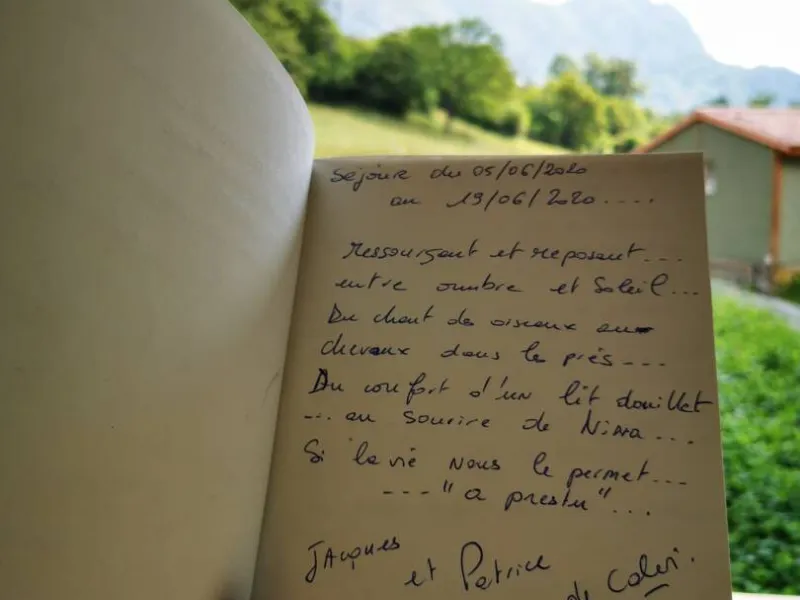 Séjour du 05/06/2020
au 19/06/2020....
Ressourçant et reposant...
entre ombre et Soleil...
Du chant des oiseaux aux
chevaux dans le prés...
Du confort d'un lit douillet
... au sourire de Nina...
Si la vie nous le permet...
..." a prestu"...
JACques
et Patrice
de Calvi.